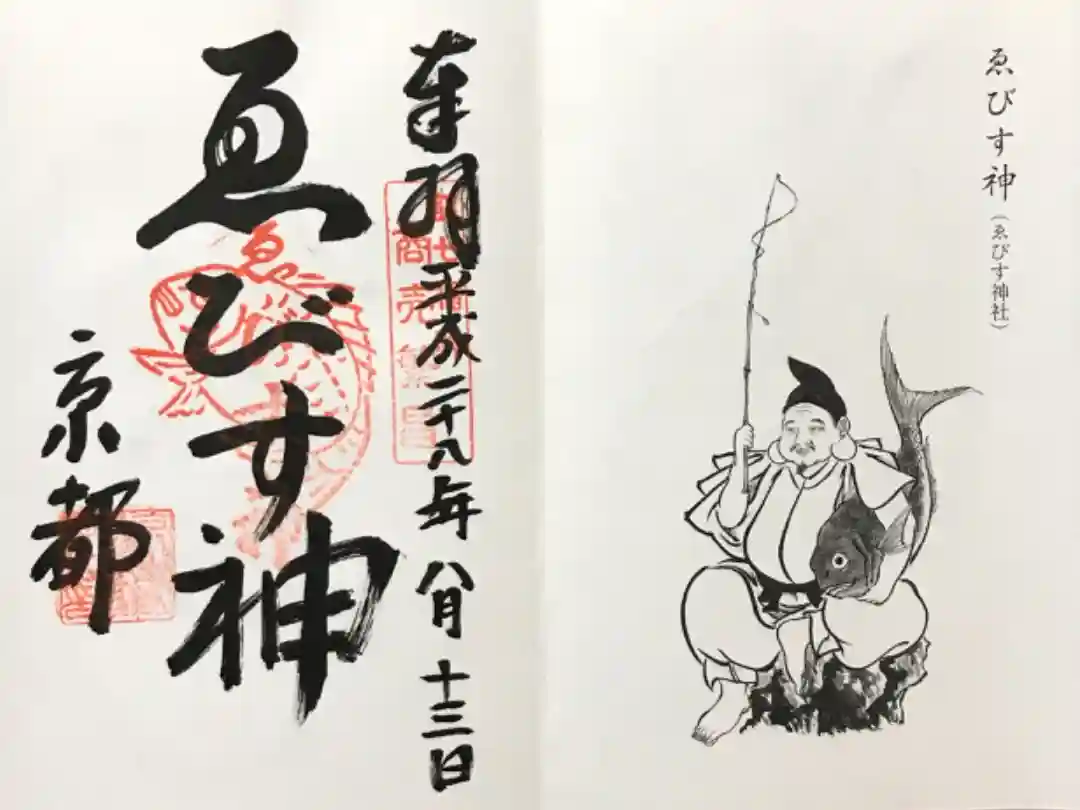 ゑびす神
(ゑびす神社)
奉拝 平成二十八年 八月 十三日
商売繁昌
ゑびす神
ゑ
京都